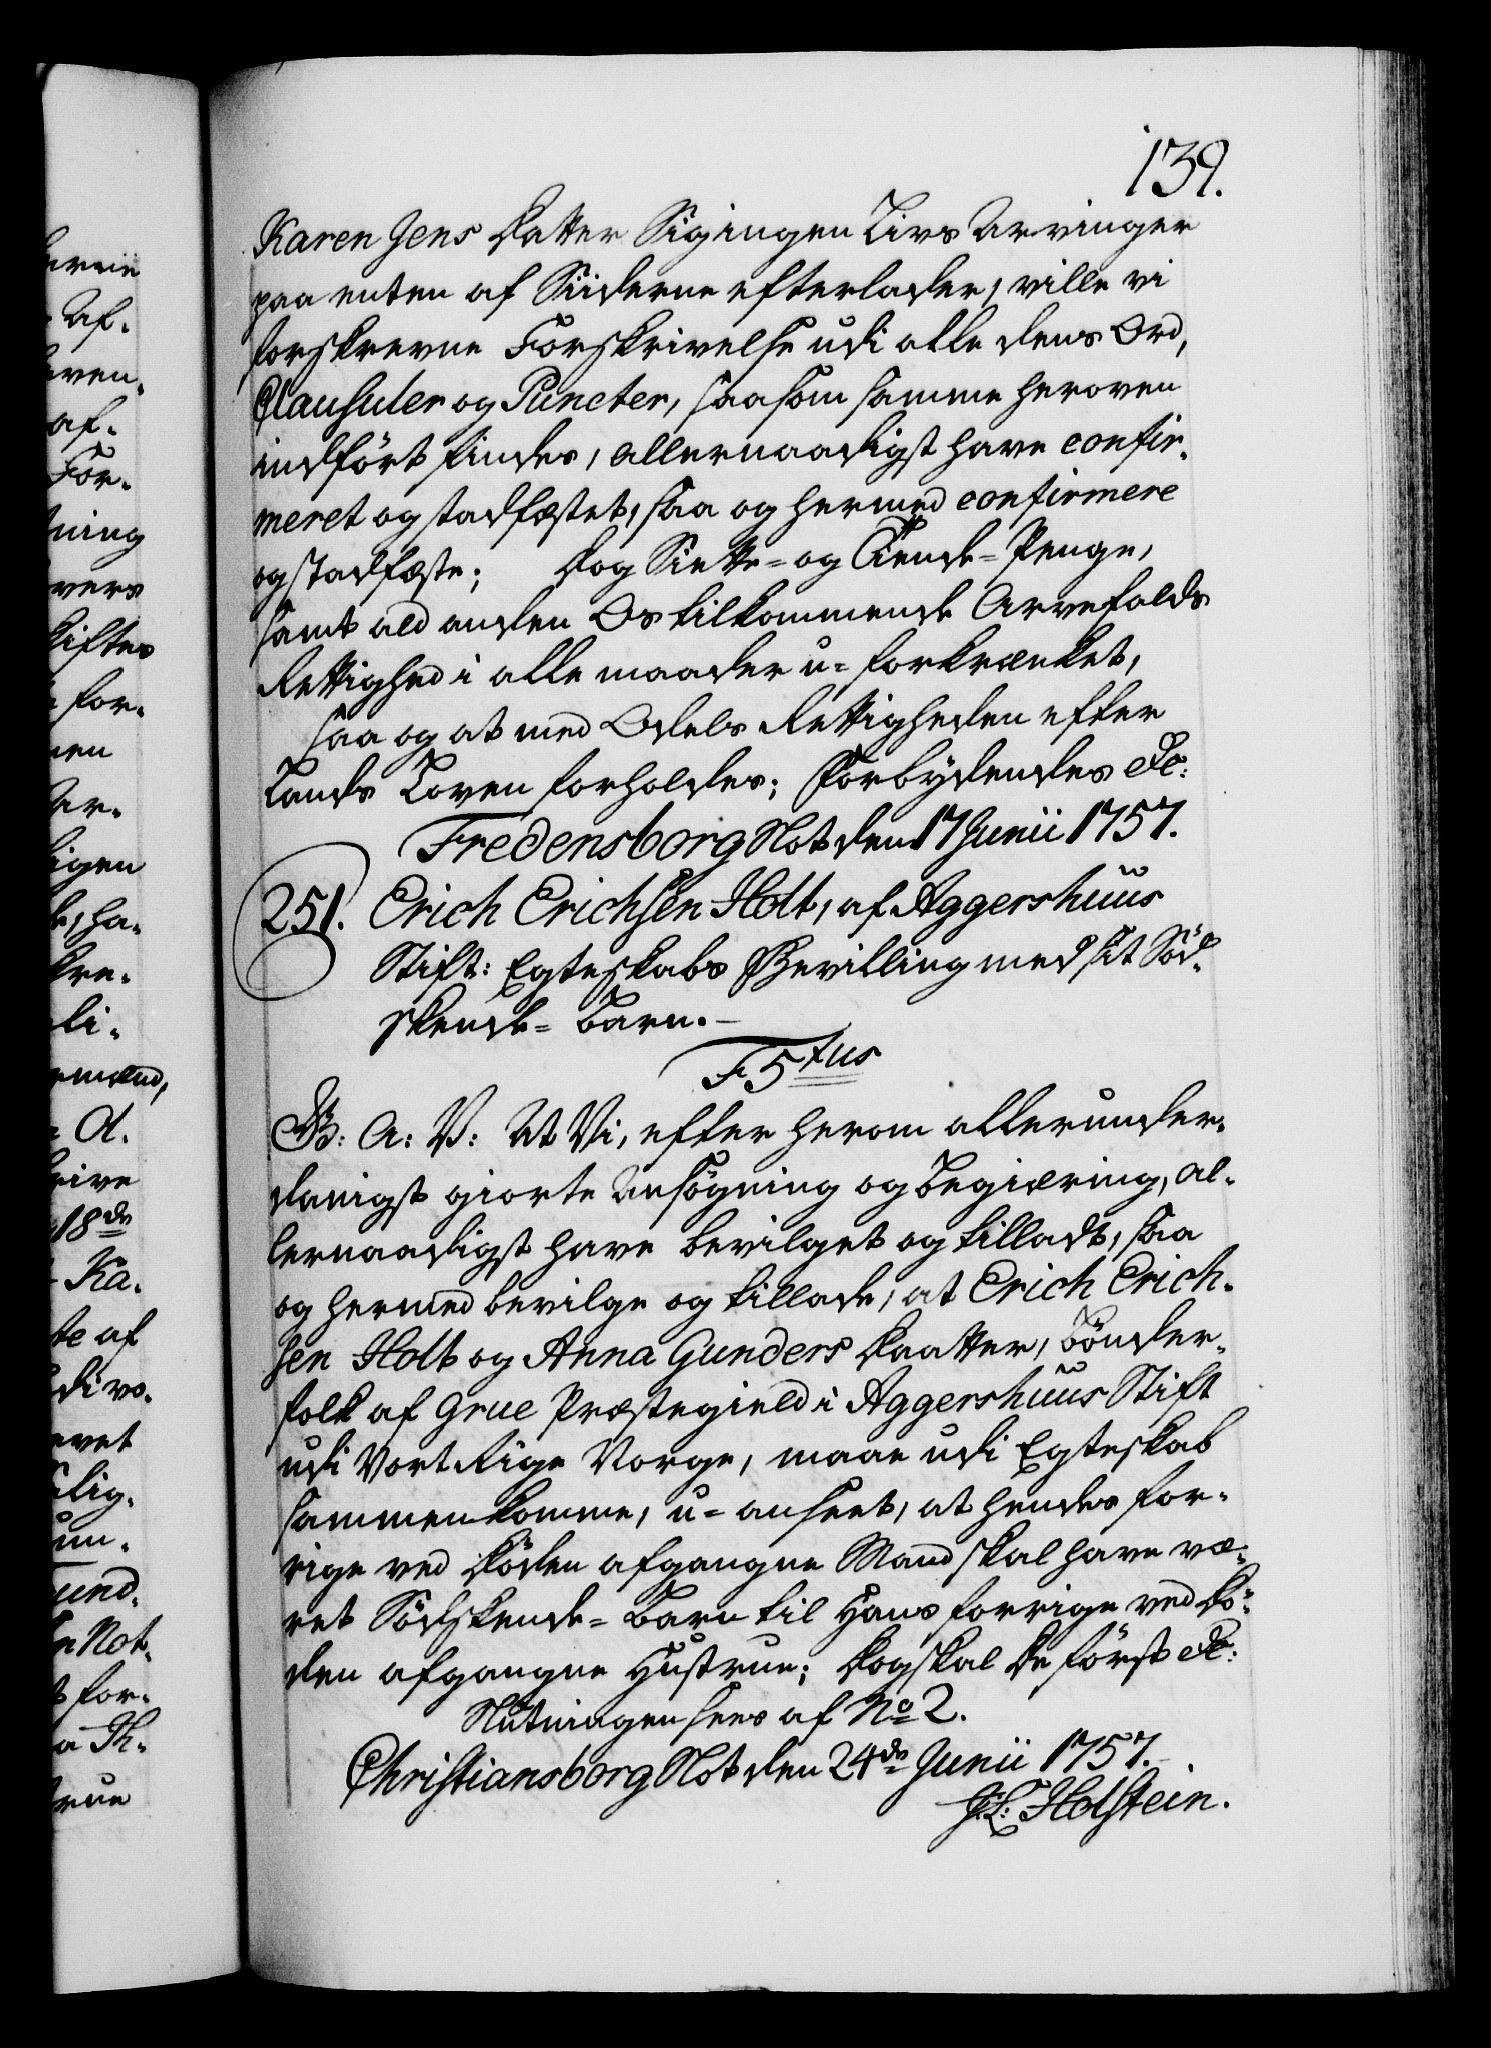 139.
Karen Jens Datter Sig ingen Livs Arvinger
paa enten af Siiderne efterlader, ville vi
forskrevne Forskrivelse udi alle dens Ord,
Clausuler og Puncter, saasom samme heroven
indført findes, allernaadigst have confir-
meret og stadfæstet, saa og hermed confirmere
og stadfæste; Dog Siette- og Tiende-Penge,
samt ald anden Os tilkommende Arvefalds
Rettighed i alle maader u-forkrænket,
saa og at med Odels Rettigheden efter
Lands Loven forholdes; Forbydendes &c:
Fredensborg Slot den 17 Junii 1757.
251. Erich Erichsen Holt, af Aggershuus
Stift: Egteskabs Bevilling med sit Sød-
skende-Barn.
F 5tus
G: A: V: At Vi, efter herom allerunder-
danigst giorte Ansøgning og Begiæring, al-
lernaadigst have bevilget og tilladt, saa
og hermed bevilge og tillade, at Erich Erich-
sen Holt og Anna Gunders Daatter, Bønder-
folk af Grue Præstegield i Aggershuus Stift
udi Vort Rige Norge, maae udi Egteskab
sammenkomme, u-anseet, at hendes for-
rige ved Døden afgangne Mand skal have væ-
ret Sødskende-Barn til Hans forrige ved Dø-
den afgangne Hustrue; Dog skal De først &c:
Slutningen sees af No 2.
Christiansborg Slot den 24de Junii 1757.
J: L: Holstein.